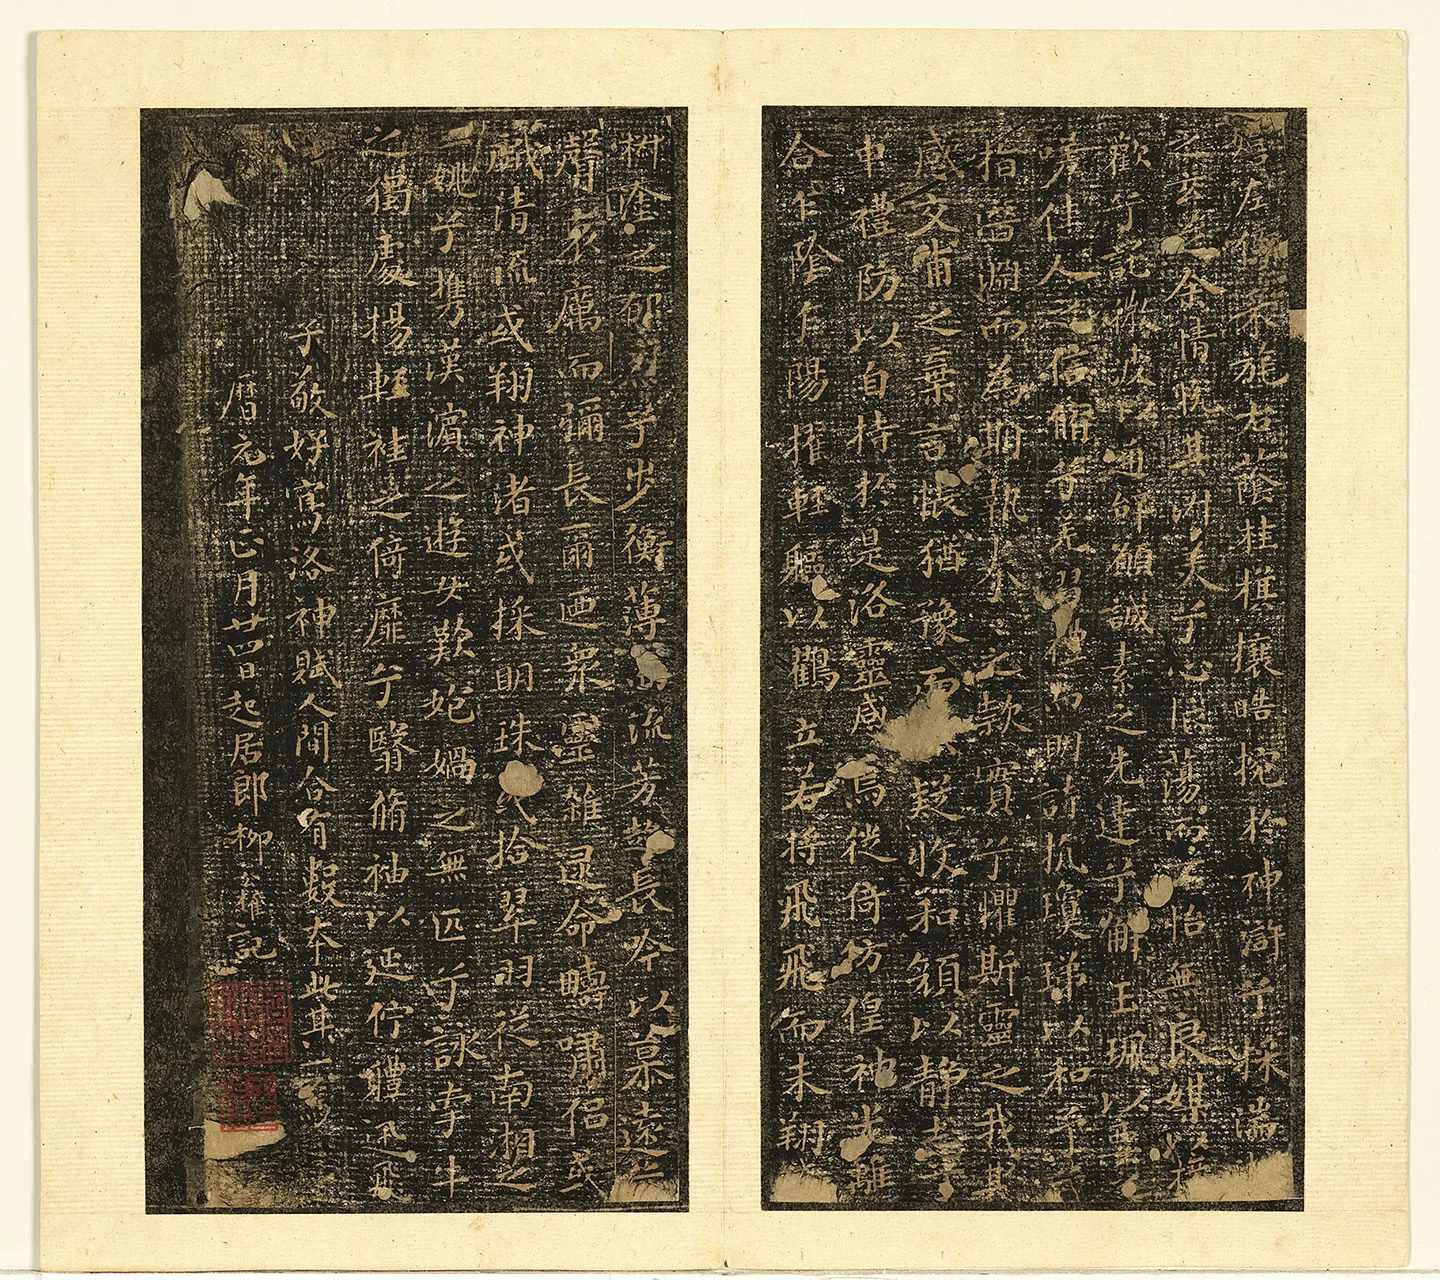 嬉左倚采旄右蔭桂旗攘皓捥於神滸兮採湍
之玄芝余情悅其淑美兮心振蕩而不怡無良媒以接
歡兮託微波以通辭願誠素之先達兮解玉珮以要之
嗟佳人之信脩兮羌習禮而明詩抗瓊珶以和予兮
指潛淵而為期執眷眷之款實兮懼斯靈之我欺
感交甫之棄言悵猶豫而狐疑收和顏以靜志
申禮防以自持於是洛靈感焉徙倚仿偟神光離
合乍陰乍陽擢輕軀以鶴立若將飛飛而未翔
樹塗之郁烈兮步衡薄而流芳超長吟以慕遠兮
聲哀厲而彌長爾迺眾靈雜遝命疇嘯侶或
戲清流或翔神渚或採明珠或拾翠羽從南湘之
二姚兮攜漢濱之遊女歎㚿媧之無匹兮詠牽牛
之獨處揚輕袿之倚靡兮翳脩袖以延佇體迅飛
子敬好寫洛神賦人間合有數本此其一
曆元年正月廿四日起居郎柳公權記